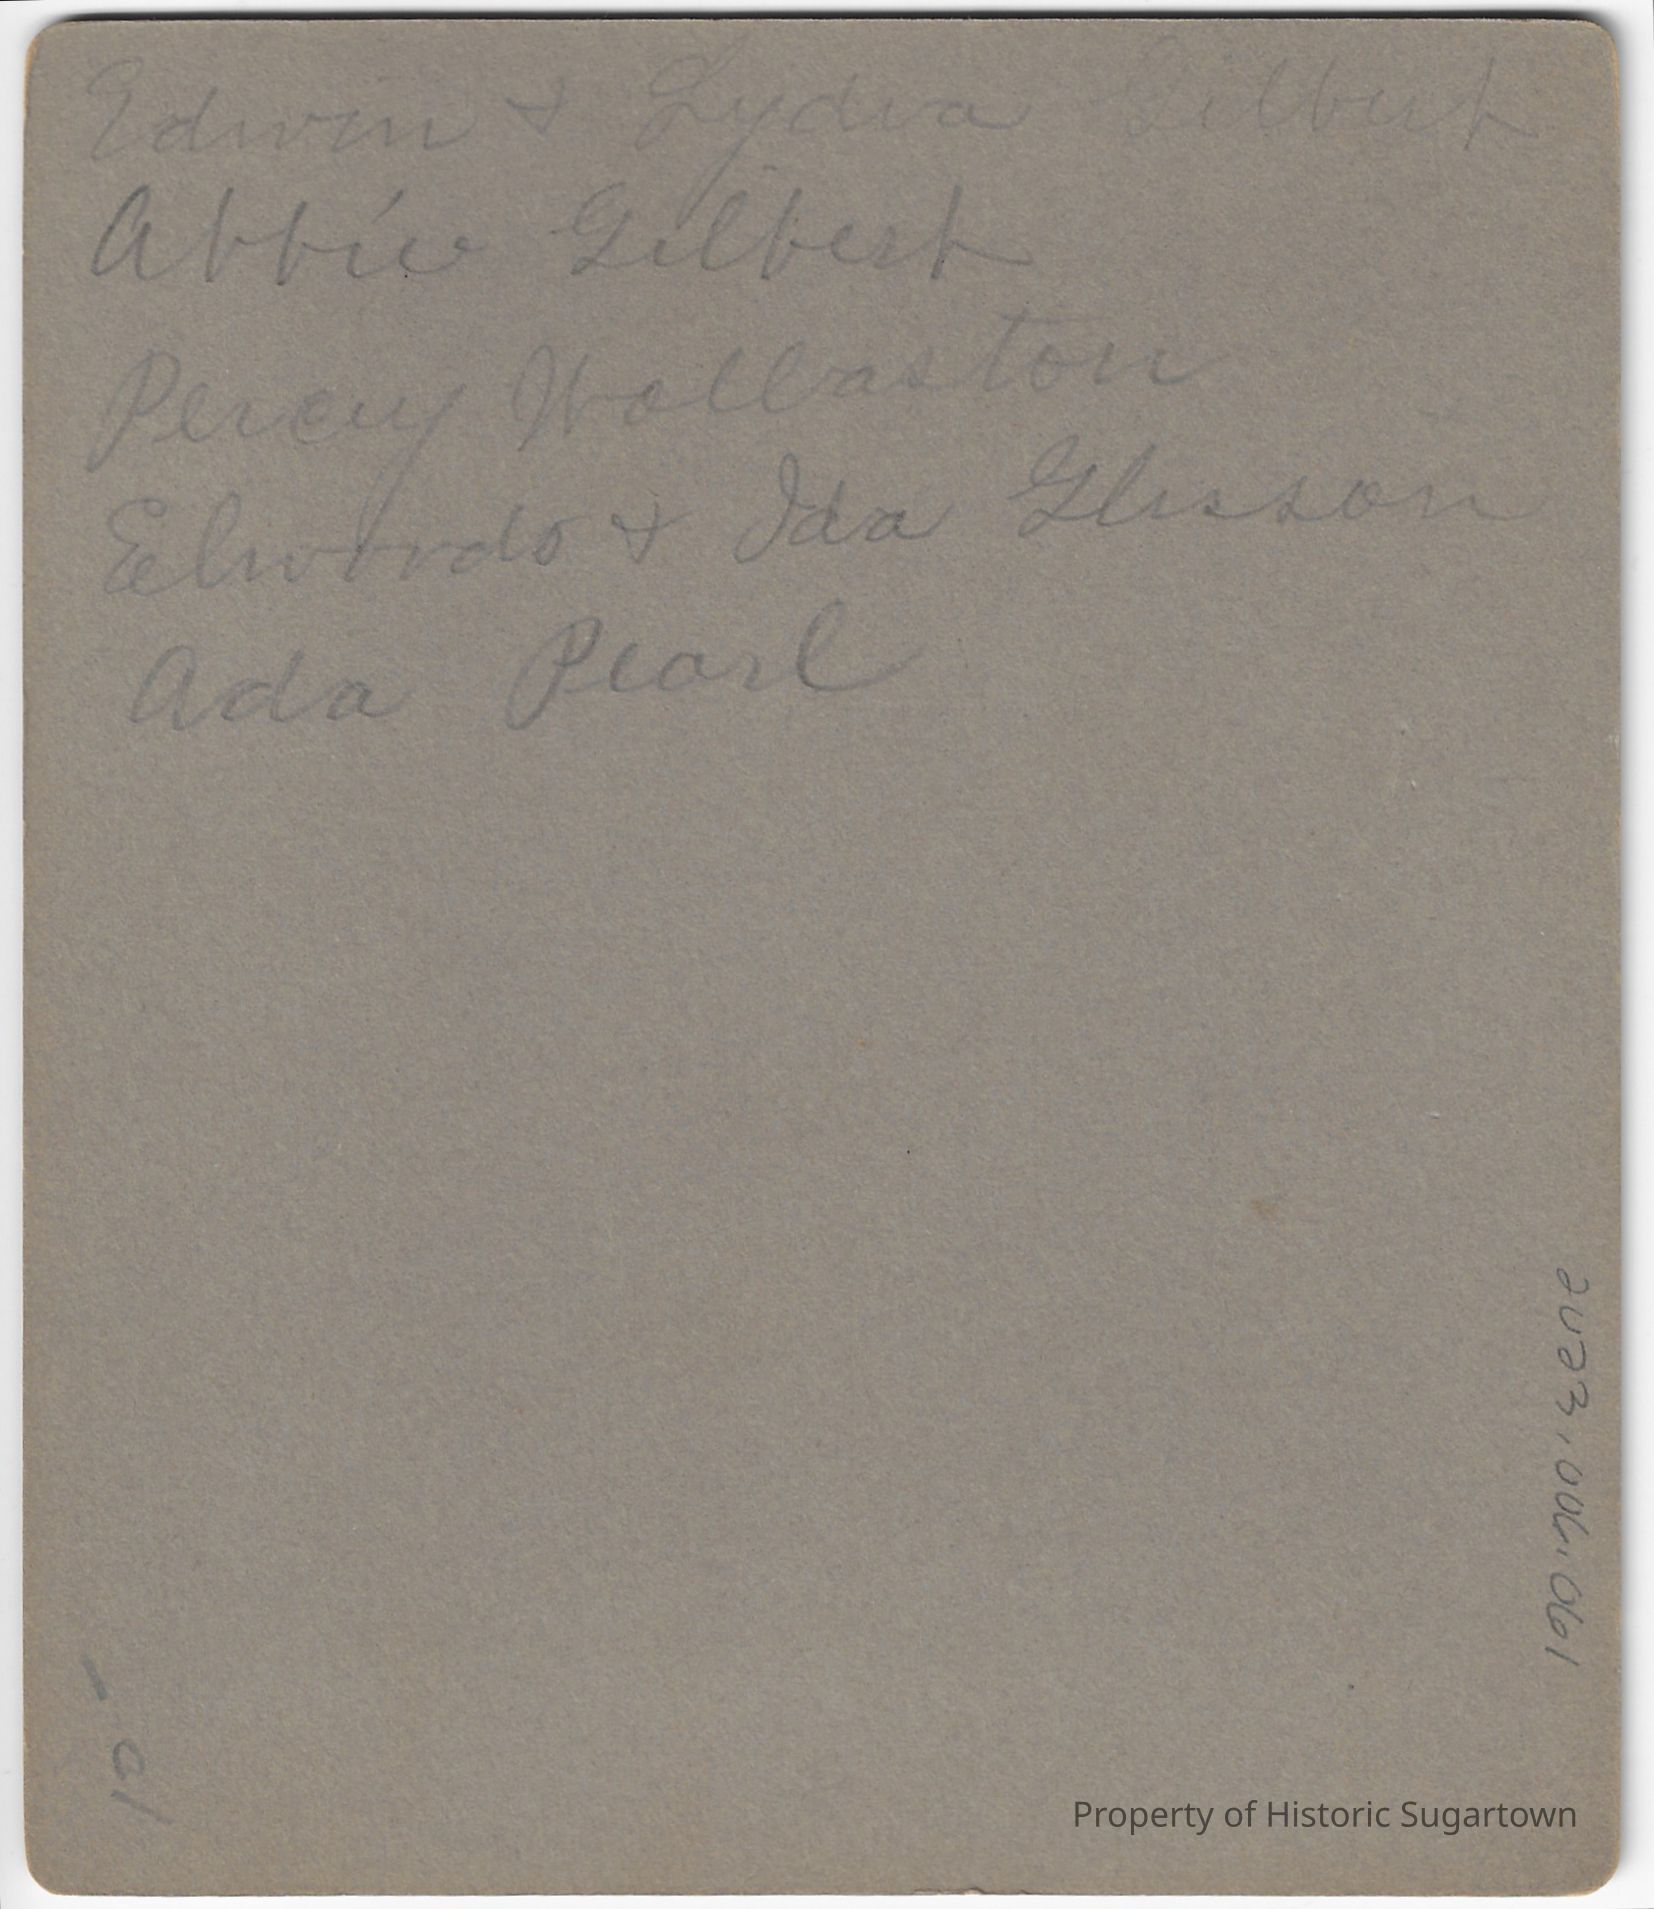 Edwin & Lydia Gilbert
Abbie Gilbert
Percy Wollaston
Elwood & Ida Glisson
Ada Pearl
2023.006.061
Property of Historic Sugartown